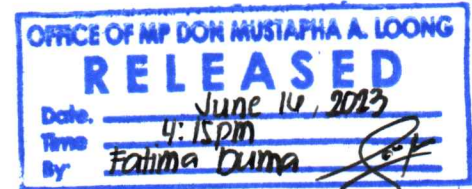 OFFICE OF MP DON MUSTAPHA A. LOONG
RELEASED
Date. June 16, 2023
Time 4:15pm
By: Fatima Duma